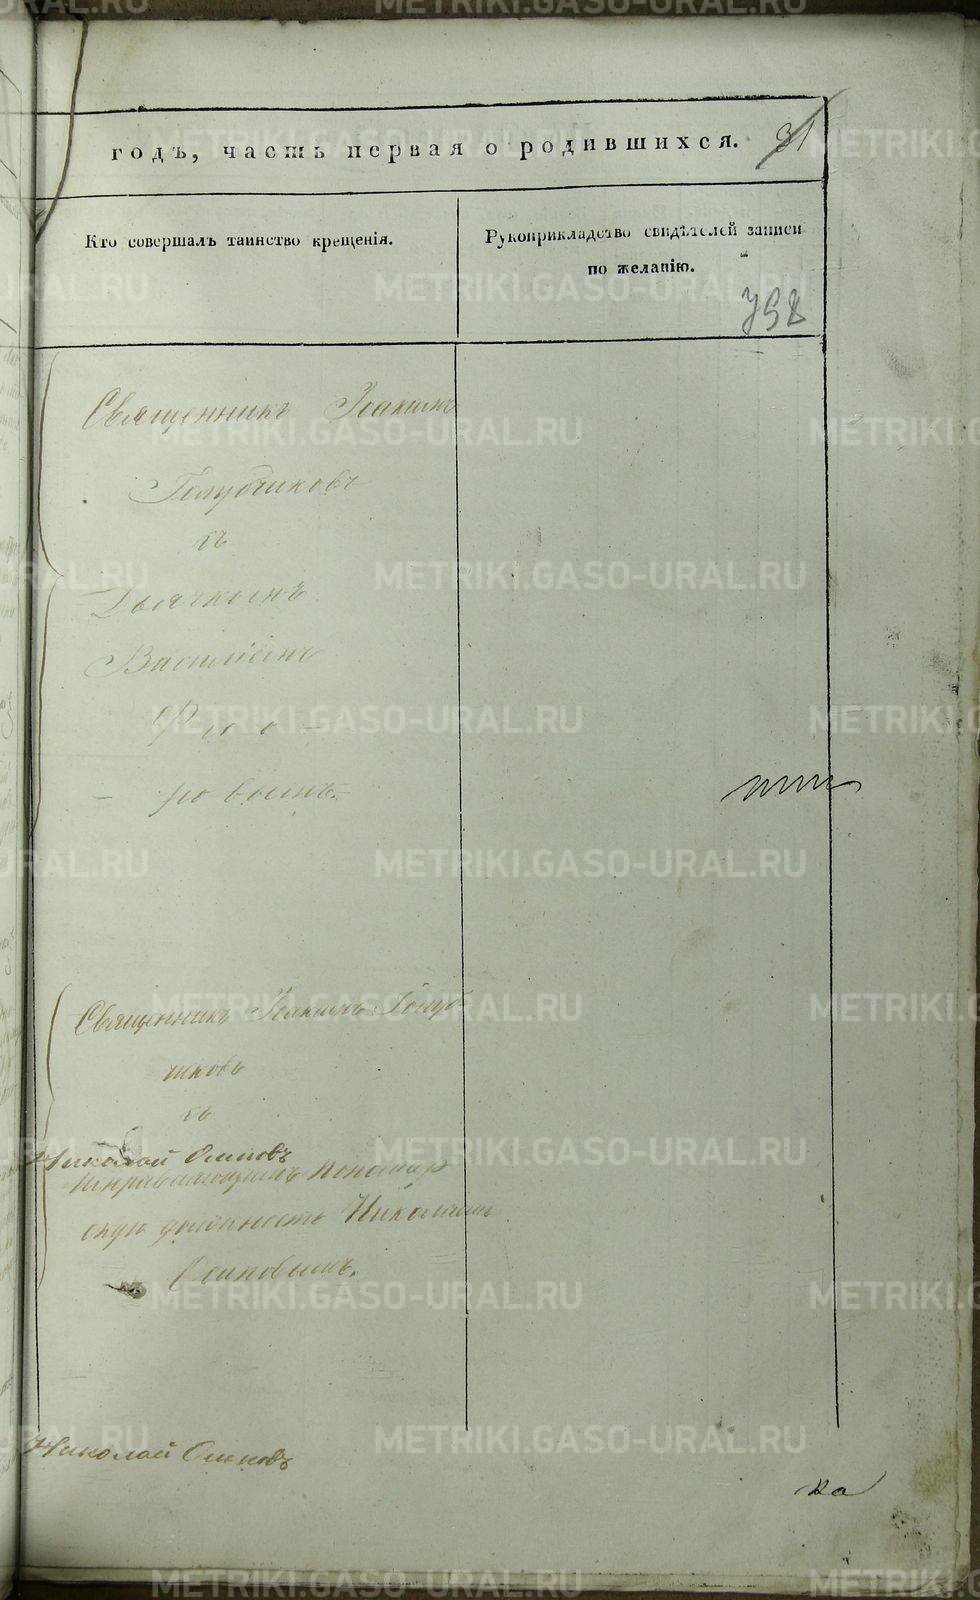 годъ, часть первая о родившихся. 91
Кто совершалъ таинство крещенія.
Рукоприкладство свидѣтелей записи
по желанію.
758
Священникъ Іоакимъ
Голубчиковъ
съ
Дьячкомъ
Василіемъ
Фло-
-ровымъ.-
Священникъ Іоакимъ Голуб
чиковъ
съ
Николай Осиповъ
исправляющимъ понамар
скую должность Николаемъ
Осиповымъ.
Николай Осиповъ
METRIKI.GASO-URAL.RU